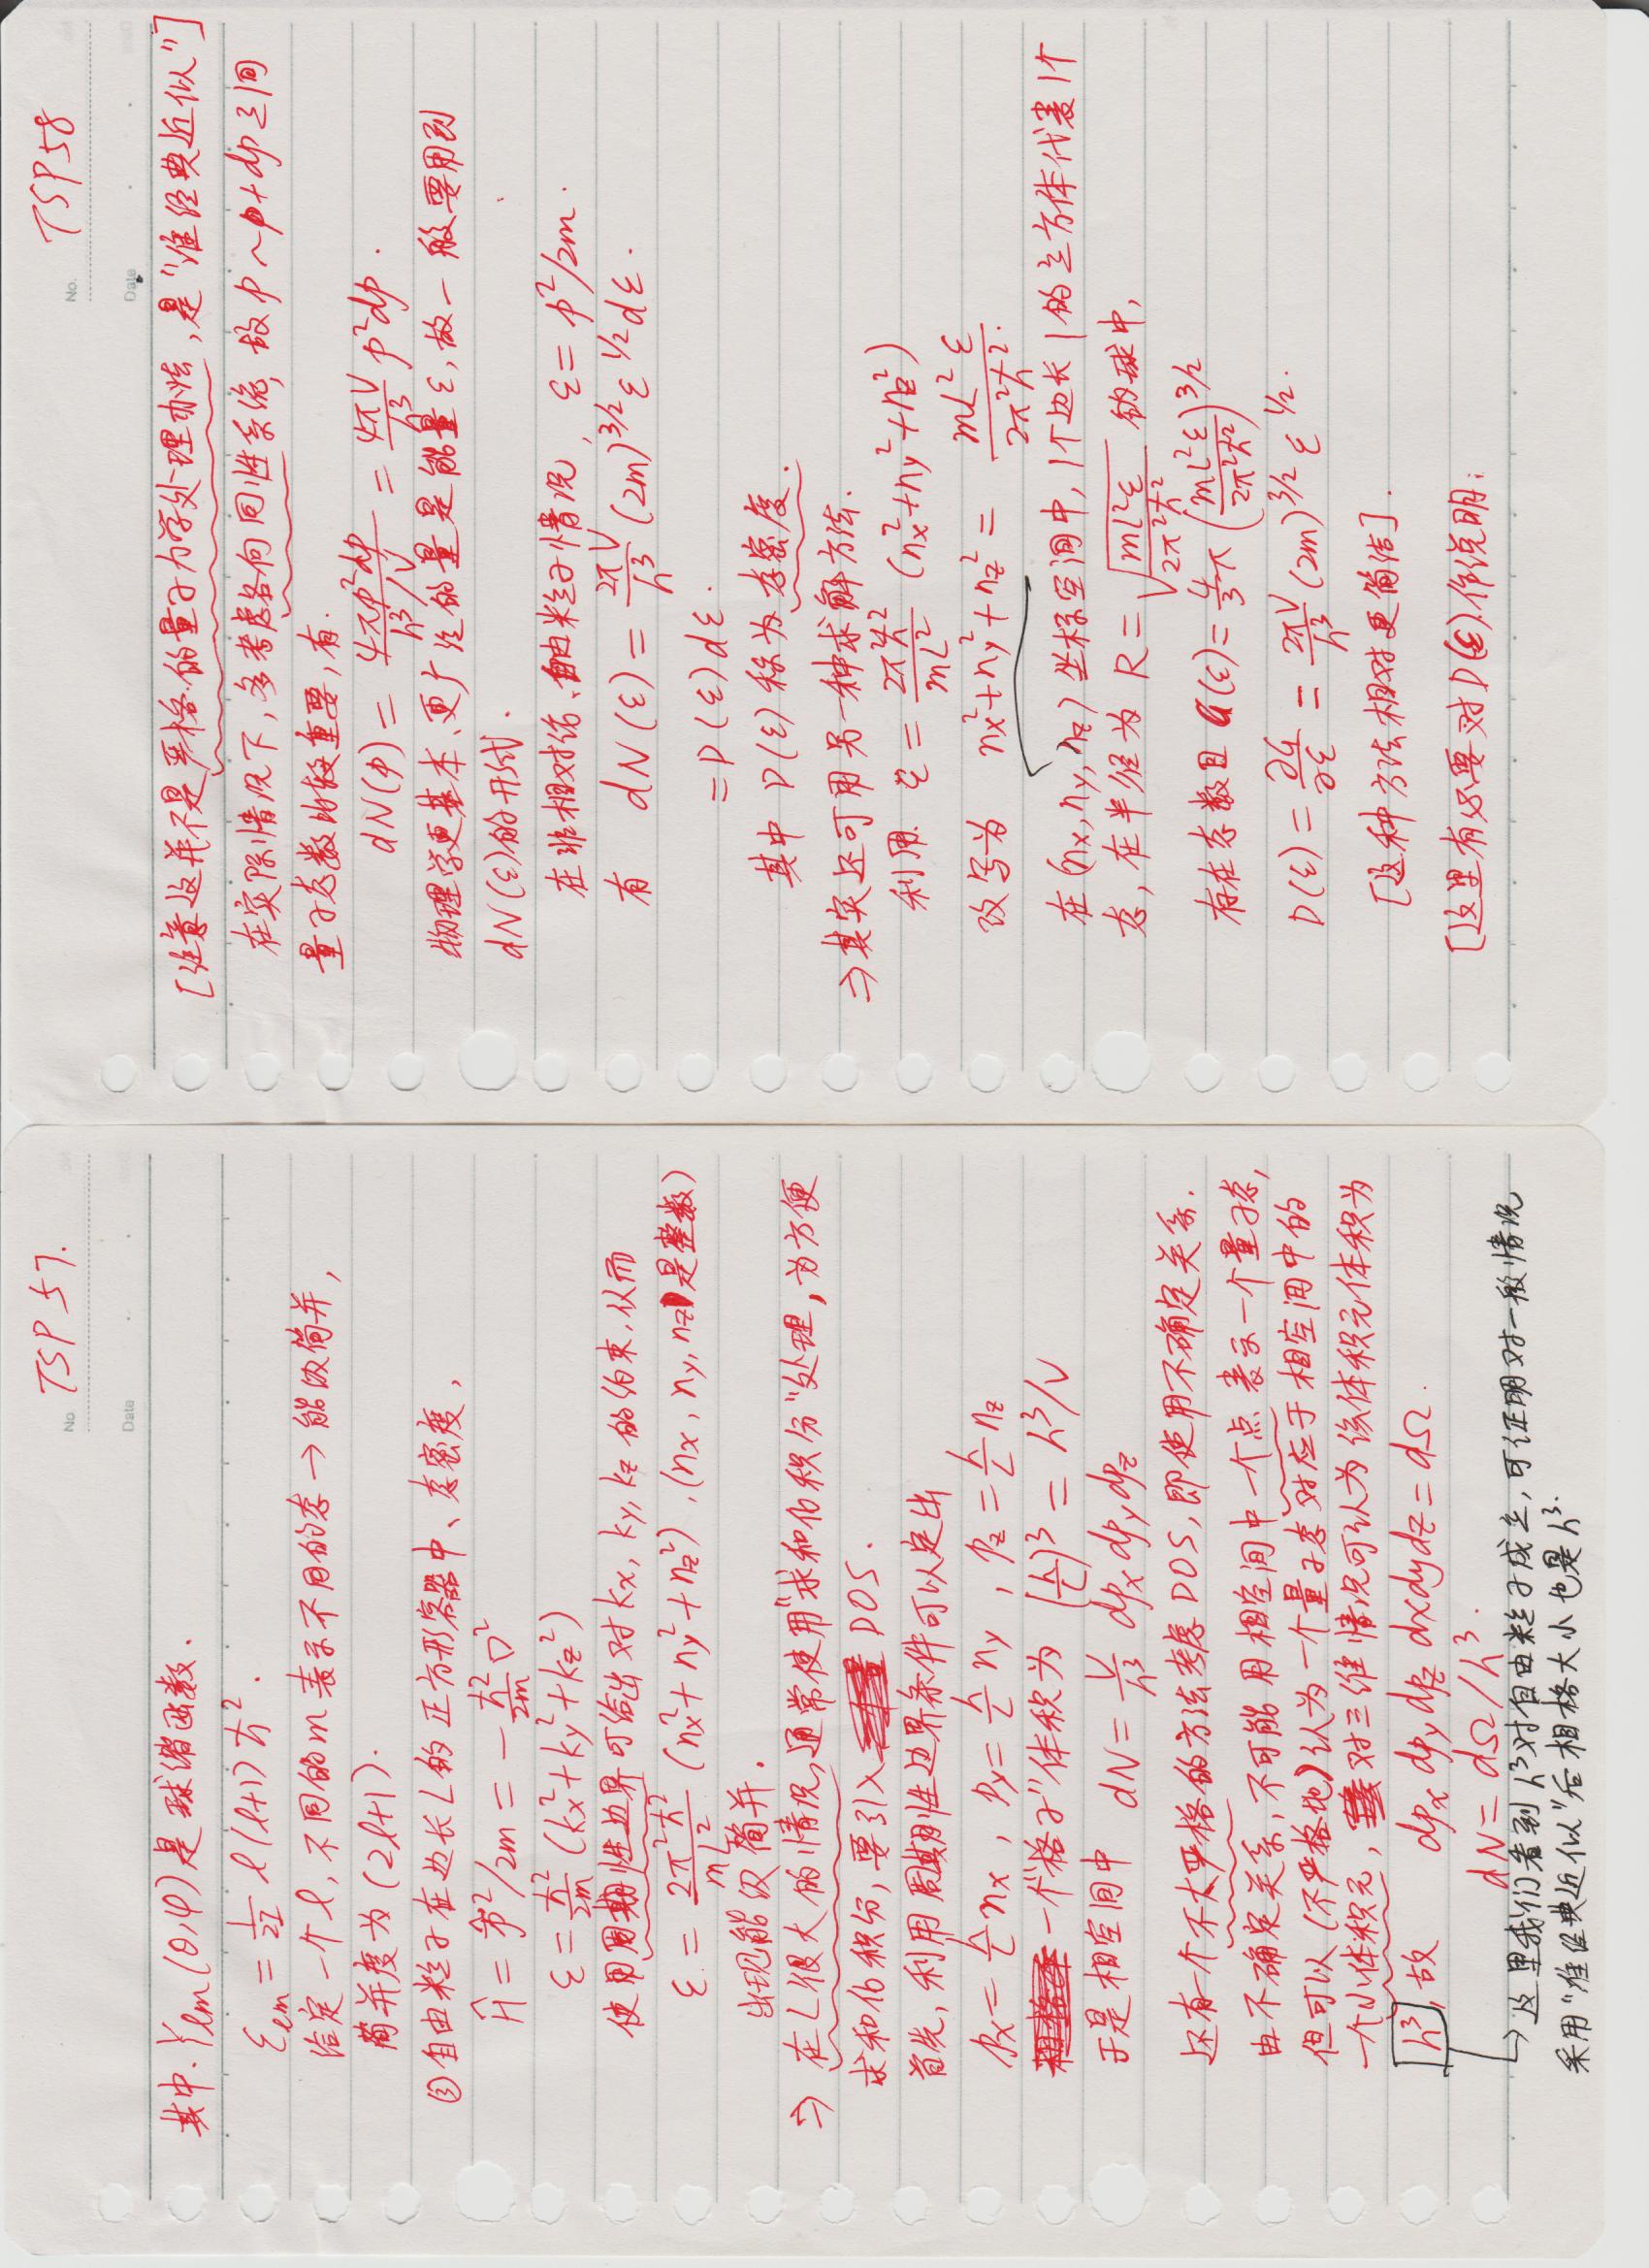 No. TSP 57.
Date
其中 Yℓm(θ,φ) 是球谐函数.
εℓm = 1/2I ℓ(ℓ+1)ħ².
给定一个ℓ, 不同的m表示不同的态→能级简并,
简并度为(2ℓ+1).
③自由粒子在边长L的正方形容器中、态密度,
Ĥ = p̂²/2m = -ħ²/2m ∇²
ε = ħ²/2m (kx²+ky²+kz²)
使用周期性边界可给出对kx, ky, kz的约束, 从而
ε = 2π²ħ²/mL² (nx²+ny²+nz²), (nx, ny, nz是整数)
出现能级简并.
⇒ 在L很大的情况, 通常使用"求和化积分"处理, 为方便
求和化积分, 要引入 DOS.
首先, 利用周期性边界条件可以定出
px = h/L nx, py = h/L ny, pz = h/L nz
一个"格子"体积为 (h/L)³ = h³/V
于是相空间中 dN = V/h³ dpx dpy dpz
还有一个不太严格的方法考虑DOS, 即使用不确定关系.
由不确定关系, 不可能用相空间中一个点表示一个量子态,
但可以(不严格地)认为一个量子态对应于相空间中的
一个小体积元, 对三维情况可认为该体积元体积为
h³, 故 dpx dpy dpz dxdydz = dΩ.
dN = dΩ/h³.
→ 这里我们看到h³对自由粒子成立, 可证明对一般情况
采用"准经典近似"后相格大小也是h³.
No. TSP 58
Date
[注意这并不是严格的量子力学处理办法, 是"准经典近似"]
在实际情况下, 多考虑各向同性系统, 故p~p+dp之间
量子态数比较重要, 有.
dN(p) = 4πp²dp/(h³/V) = 4πV/h³ p²dp.
物理学更基本、更广泛的量是能量ε, 故一般要用到
dN(ε)的形式.
在非相对论、自由粒子情况, ε = p²/2m.
有 dN(ε) = 2πV/h³ (2m)^3/2 ε^1/2 dε.
= D(ε)dε.
其中 D(ε) 称为态密度.
⇒ 其实还可用另一种求解方法.
利用 ε = 2π²ħ²/mL² (nx²+ny²+nz²)
改写为 nx²+ny²+nz² = mL²ε/2π²ħ².
在(nx, ny, nz)坐标空间中, 1个边长1的立方体代表1个
态, 在半径为 R = √(mL²ε/2π²ħ²) 的球中,
存在态数目 G(ε) = 4/3 π (mL²ε/2π²ħ²)^3/2
D(ε) = ∂G/∂ε = 2πV/h³ (2m)^3/2 ε^1/2.
[这种方法相对更简洁].
[这里有必要对D(ε)作说明: